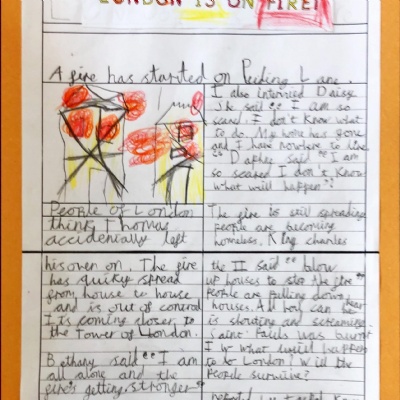 LONDON IS ON FIRE!
A fire has started on Pudding Lane.
People of London
think Thomas
accidenially left
his oven on. The fire
has quikly spread
from house to house
and is out of control
It is coming closer to
the Tower of London.
Bethany said "I am
all alone and the
fire's getting stronger"
I also intervied Daisy
She said "I am so
scared I don't know what
to do. My home has gone
and I have nowhere to live
" Daphey said "I am
so scared I don't know
what will happen"
The fire is still spreading
people are becoming
homeless. King charles
the II said "blow
up houses to stop the fire"
People are pulling down
houses. All you can hear
is shouting and screaming.
Saint Pauls was burnt
what will happen
to London? Will the
People survive?